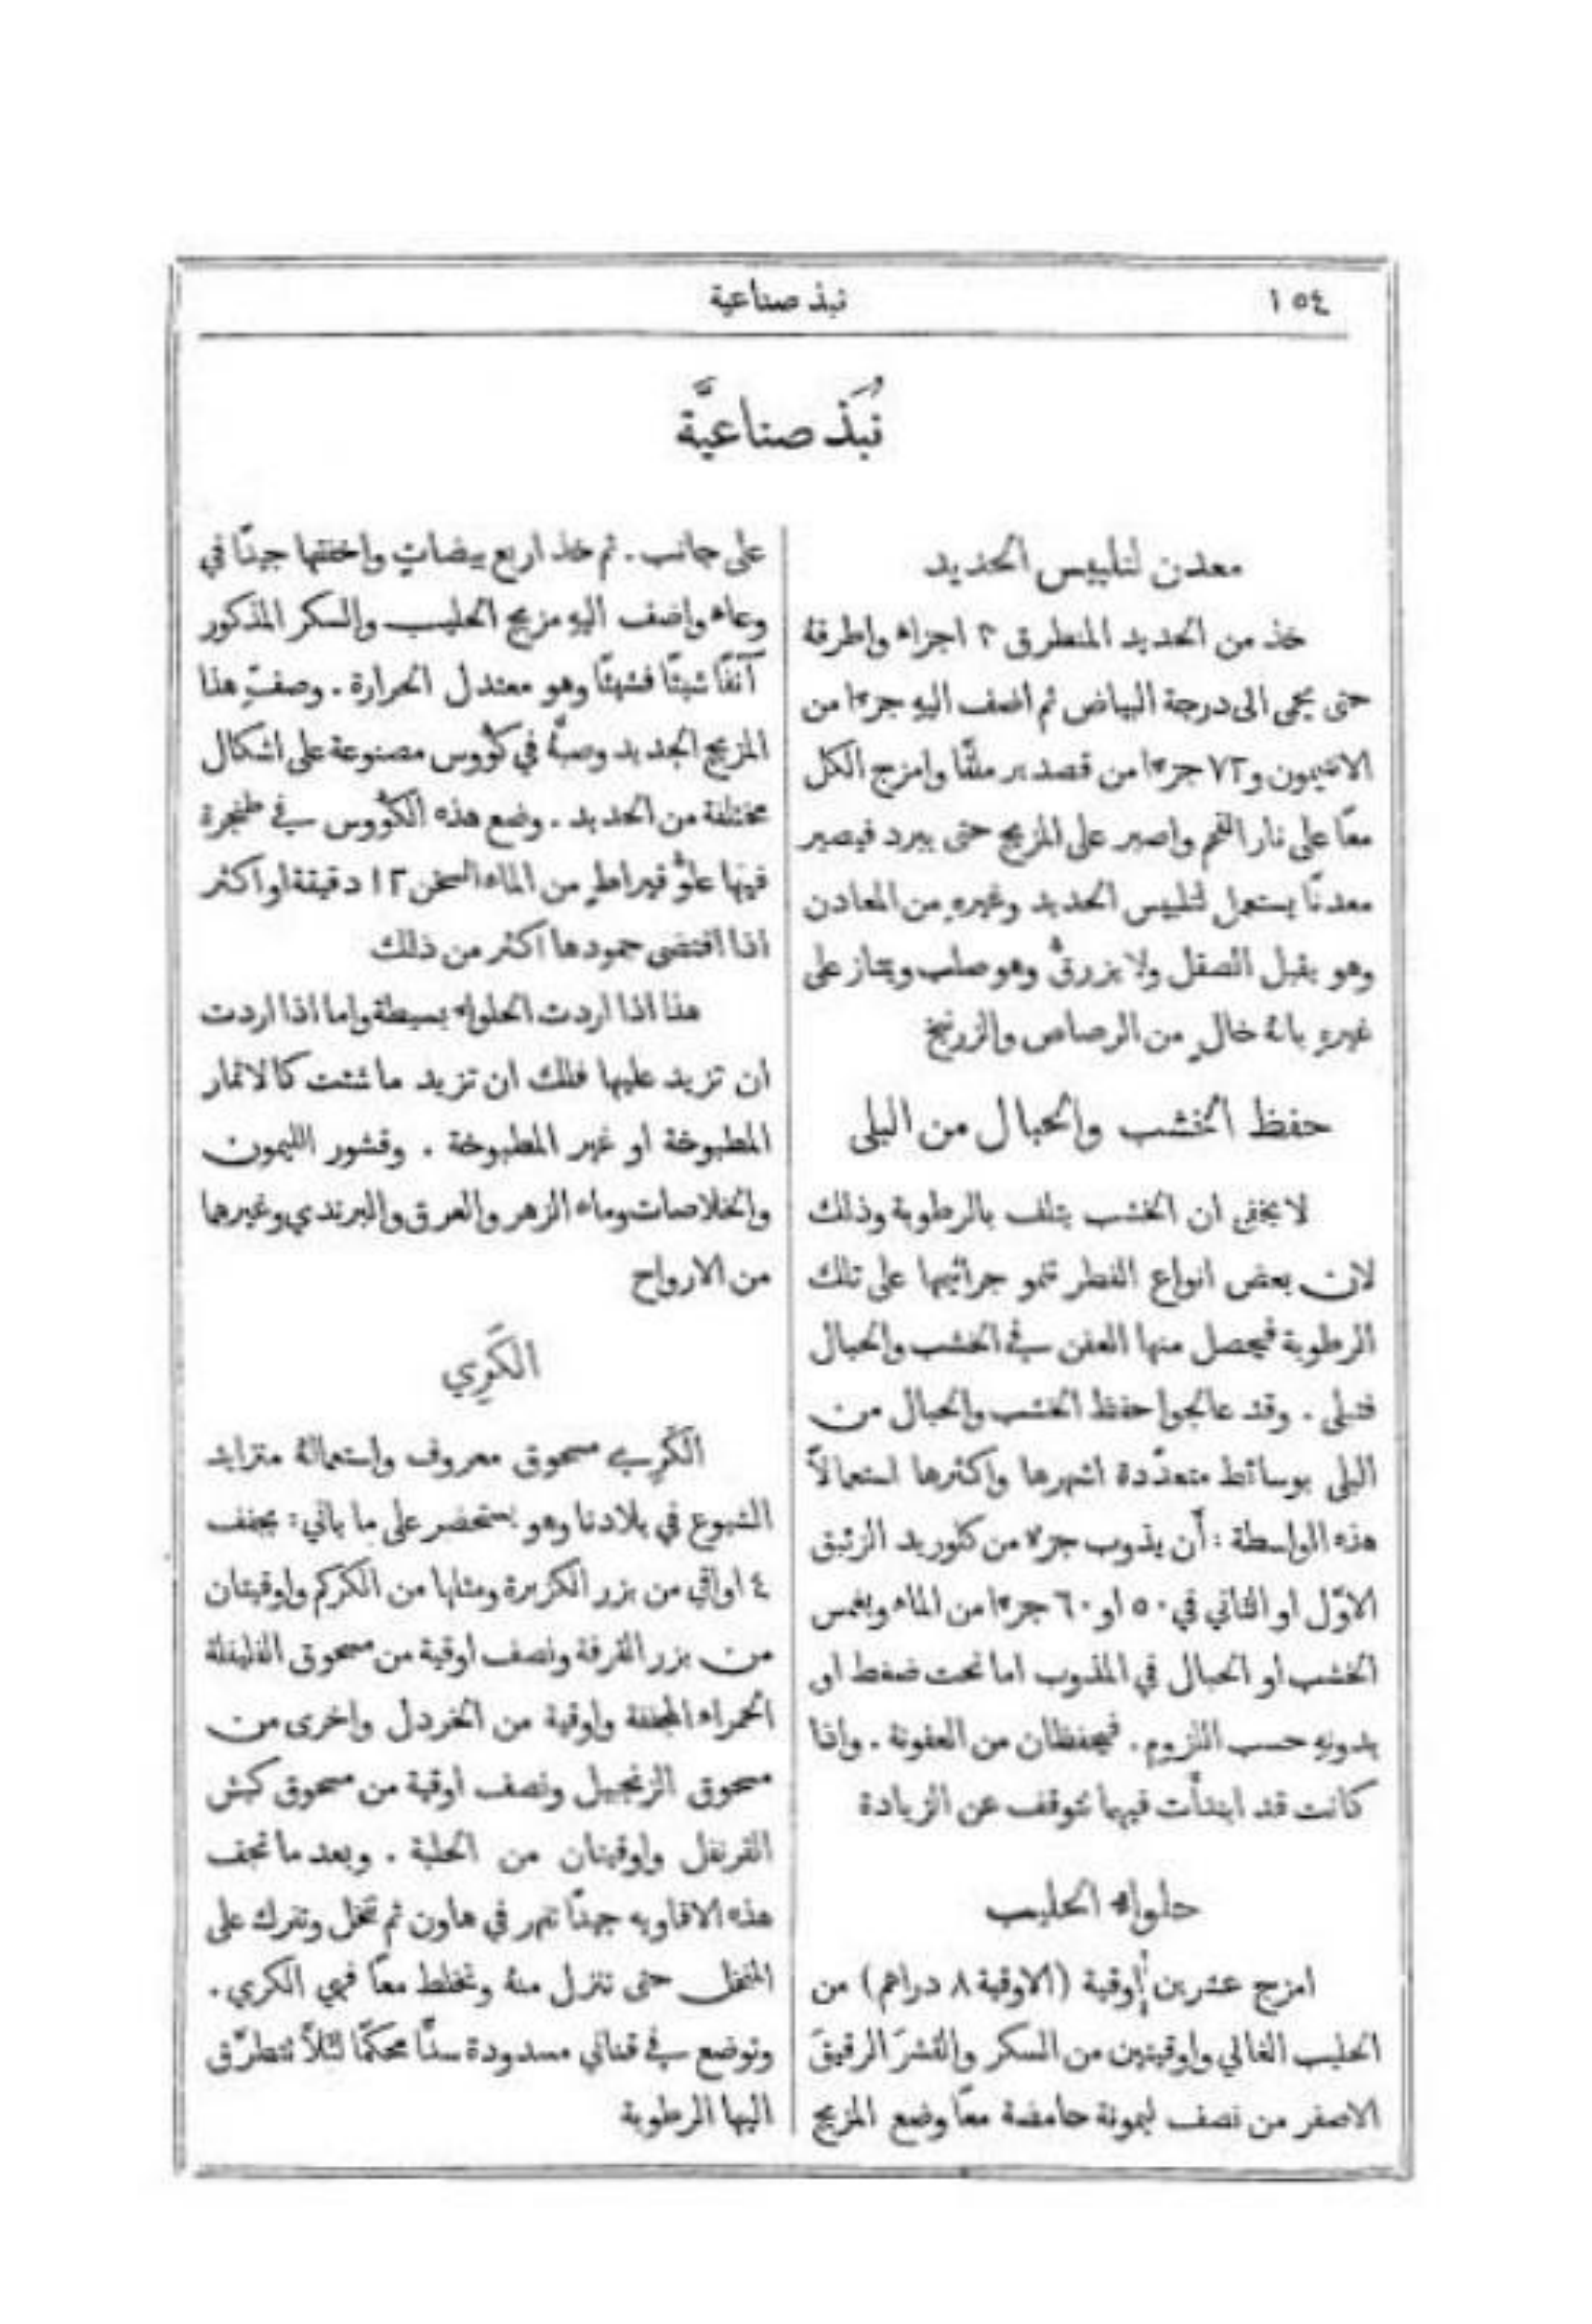 ١٥٤
نبذ صناعية
نُبَذ صناعيَّة
معدن لتلبيس الحديد
خذ من الحديد المنطرق ٣ اجزاء واطرقهُ
حتى يحمى الى درجة البياض ثم اضف اليهِ جزءًا من
الانتيمون و٧٢ جزءًا من قصدير ملقًا وامزج الكل
معًا على نار الفحم واصبر على المزيج حتى يبرد فيصير
معدنًا يستعمل لتلبيس الحديد وغيرهِ من المعادن
وهو يقبل الصقل ولا يزرقُّ وهو صلب ويمتاز على
غيرهِ بانهُ خالٍ من الرصاص والزرنيخ
حفظ الخشب والحبال من البلى
لا يخفى ان الخشب يتلف بالرطوبة وذلك
لان بعض انواع الفطر تنمو جراثيمها على تلك
الرطوبة فيحصل منها العفن في الخشب والحبال
فتبلى . وقد عالجوا حفظ الخشب والحبال من
البلى بوسائط متعدّدة اشهرها واكثرها استعمالًا
هذه الواسطة : أن يذوب جزء من كلوريد الزئبق
الاوّل او الثاني في ٥٠ او ٦٠ جزءًا من الماء ويغمس
الخشب او الحبال في المذوب اما تحت ضغط او
بدونهِ حسب اللزوم . فيحفظان من العفونة . واذا
كانت قد ابتدأَت فيهما تتوقف عن الزيادة
حلواء الحليب
امزج عشرين أوقية (الاوقية ٨ دراهم) من
الحليب الغالي واوقيتين من السكر والقشرَ الرقيقَ
الاصفر من نصف ليمونة حامضة معًا وضع المزيج
على جانب . ثم خذ اربع بيضاتٍ واخفقها جيدًا في
وعاء واضف اليهِ مزيج الحليب والسكر المذكور
آنفًا شيئًا فشيئًا وهو معتدل الحرارة . وصفِّ هذا
المزيج الجديد وصبَّهُ في كؤُوس مصنوعة على اشكال
مختلفة من الحديد . وضع هذه الكؤُوس في طنجرة
فيها علوُّ قيراطٍ من الماء السخن ١٢ دقيقة او اكثر
اذا اقتضى جمودها اكثر من ذلك
هذا اذا اردت الحلواء بسيطة واما اذا اردت
ان تزيد عليها فلك ان تزيد ما شئت كالاثمار
المطبوخة او غير المطبوخة . وقشور الليمون
والخلاصات وماء الزهر والعرق والبرندي وغيرها
من الارواح
الكَرِي
الكَرِي مسحوق معروف واستعمالهُ متزايد
الشيوع في بلادنا وهو يستحضر على ما ياتي : يجفف
٤ اواقي من بزر الكزبرة ومثلها من الكركم واوقيتان
من بزر القرفة ونصف اوقية من مسحوق الفليفلة
الحمراء المجففة واوقية من الخردل واخرى من
مسحوق الزنجبيل ونصف اوقية من مسحوق كبش
القرنفل واوقيتان من الحلبة . وبعد ما تجف
هذه الافاويه جيدًا تهر في هاون ثم تنخل وتفرك على
المنخل حتى تنزل منهُ وتخلط معًا فهي الكري .
وتوضع في قناني مسدودة سدًّا محكمًا لئلَّا تتطرَّق
اليها الرطوبة